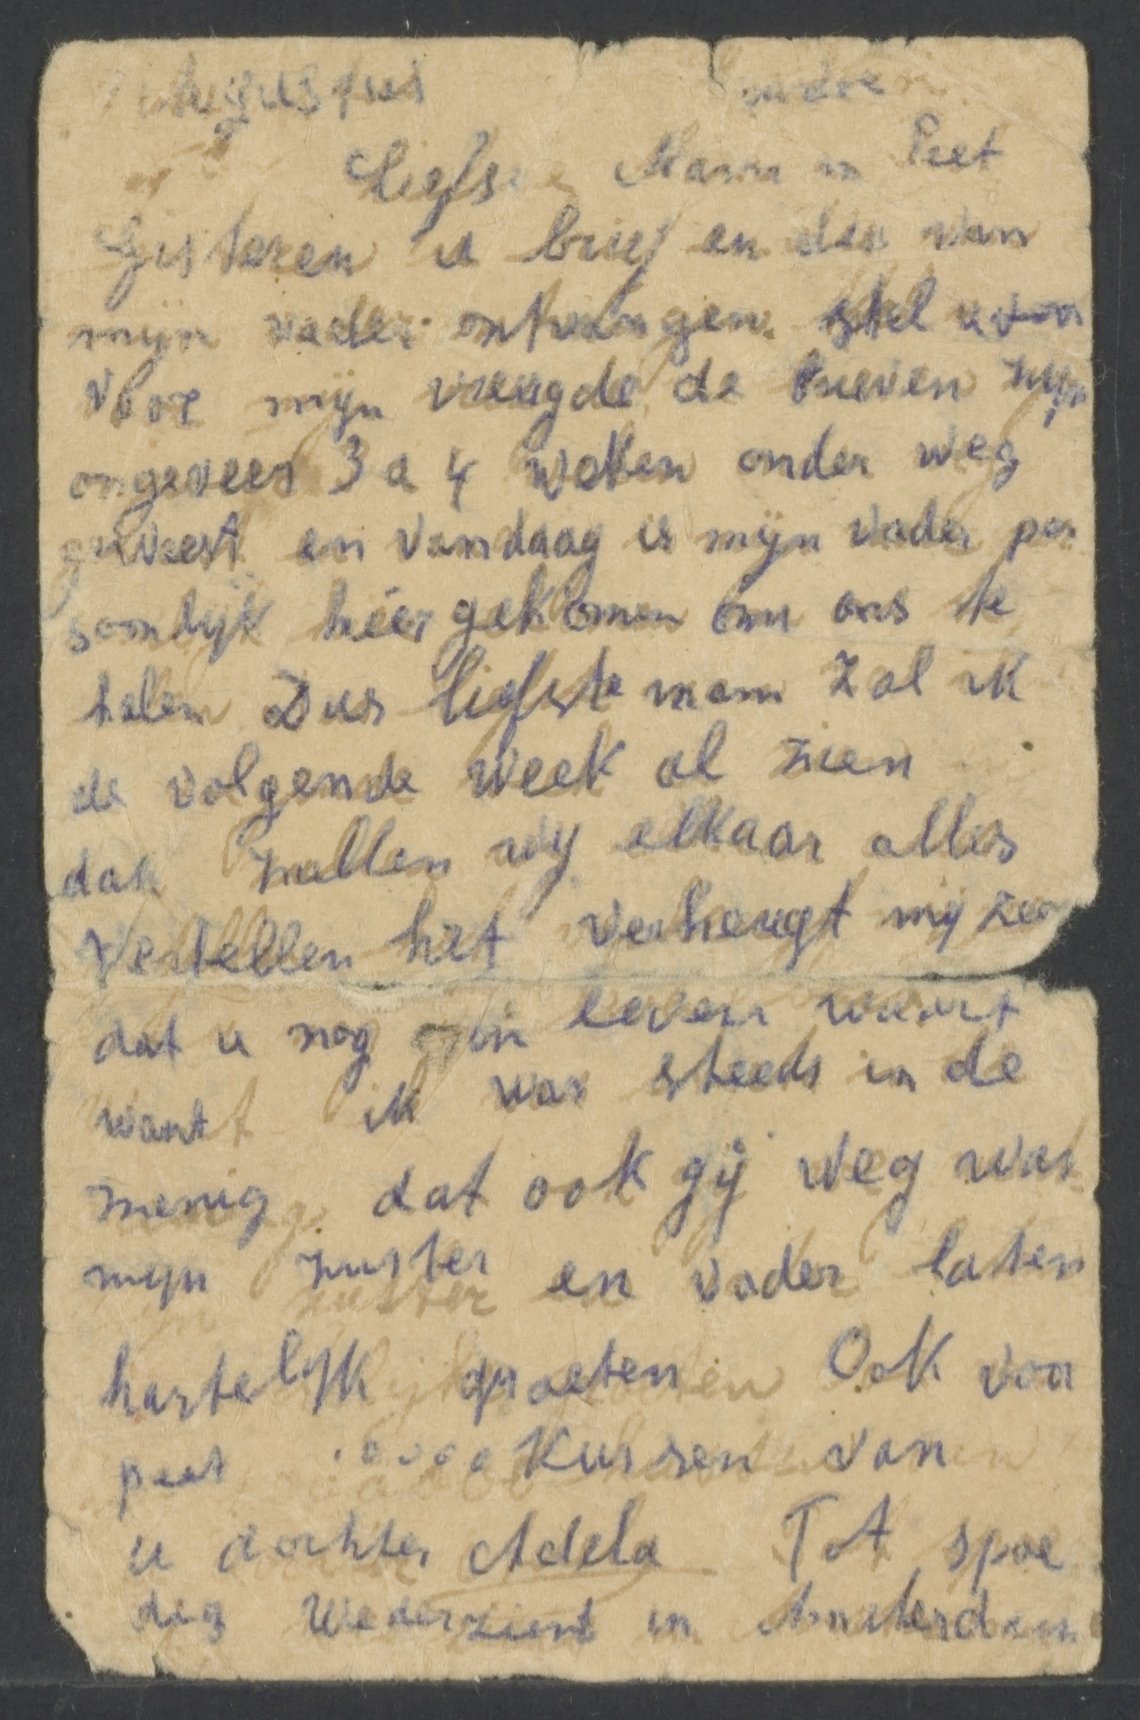 Augustus
Liefste Mama en Piet
Gisteren u brief en die van
mijn vader ontvangen. stel u voor
voor mijn vreugde de brieven zijn
ongeveer 3 a 4 weken onder weg
geweest en vandaag is mijn vader per
soonlijk héér gekomen om ons te
halen Dus liefste mam zal ik
de volgende week al zien
dan zullen wij elkaar alles
vertellen het verheugt mij zeer
dat u nog in leven waart
want ik was steeds in de
menig dat ook gij weg was
mijn zuster en vader laten
hartelijk groeten Ook voor
peet 10000 Kussen van
u dochter Adela Tot spoe
dig Wederzient in Amsterdam